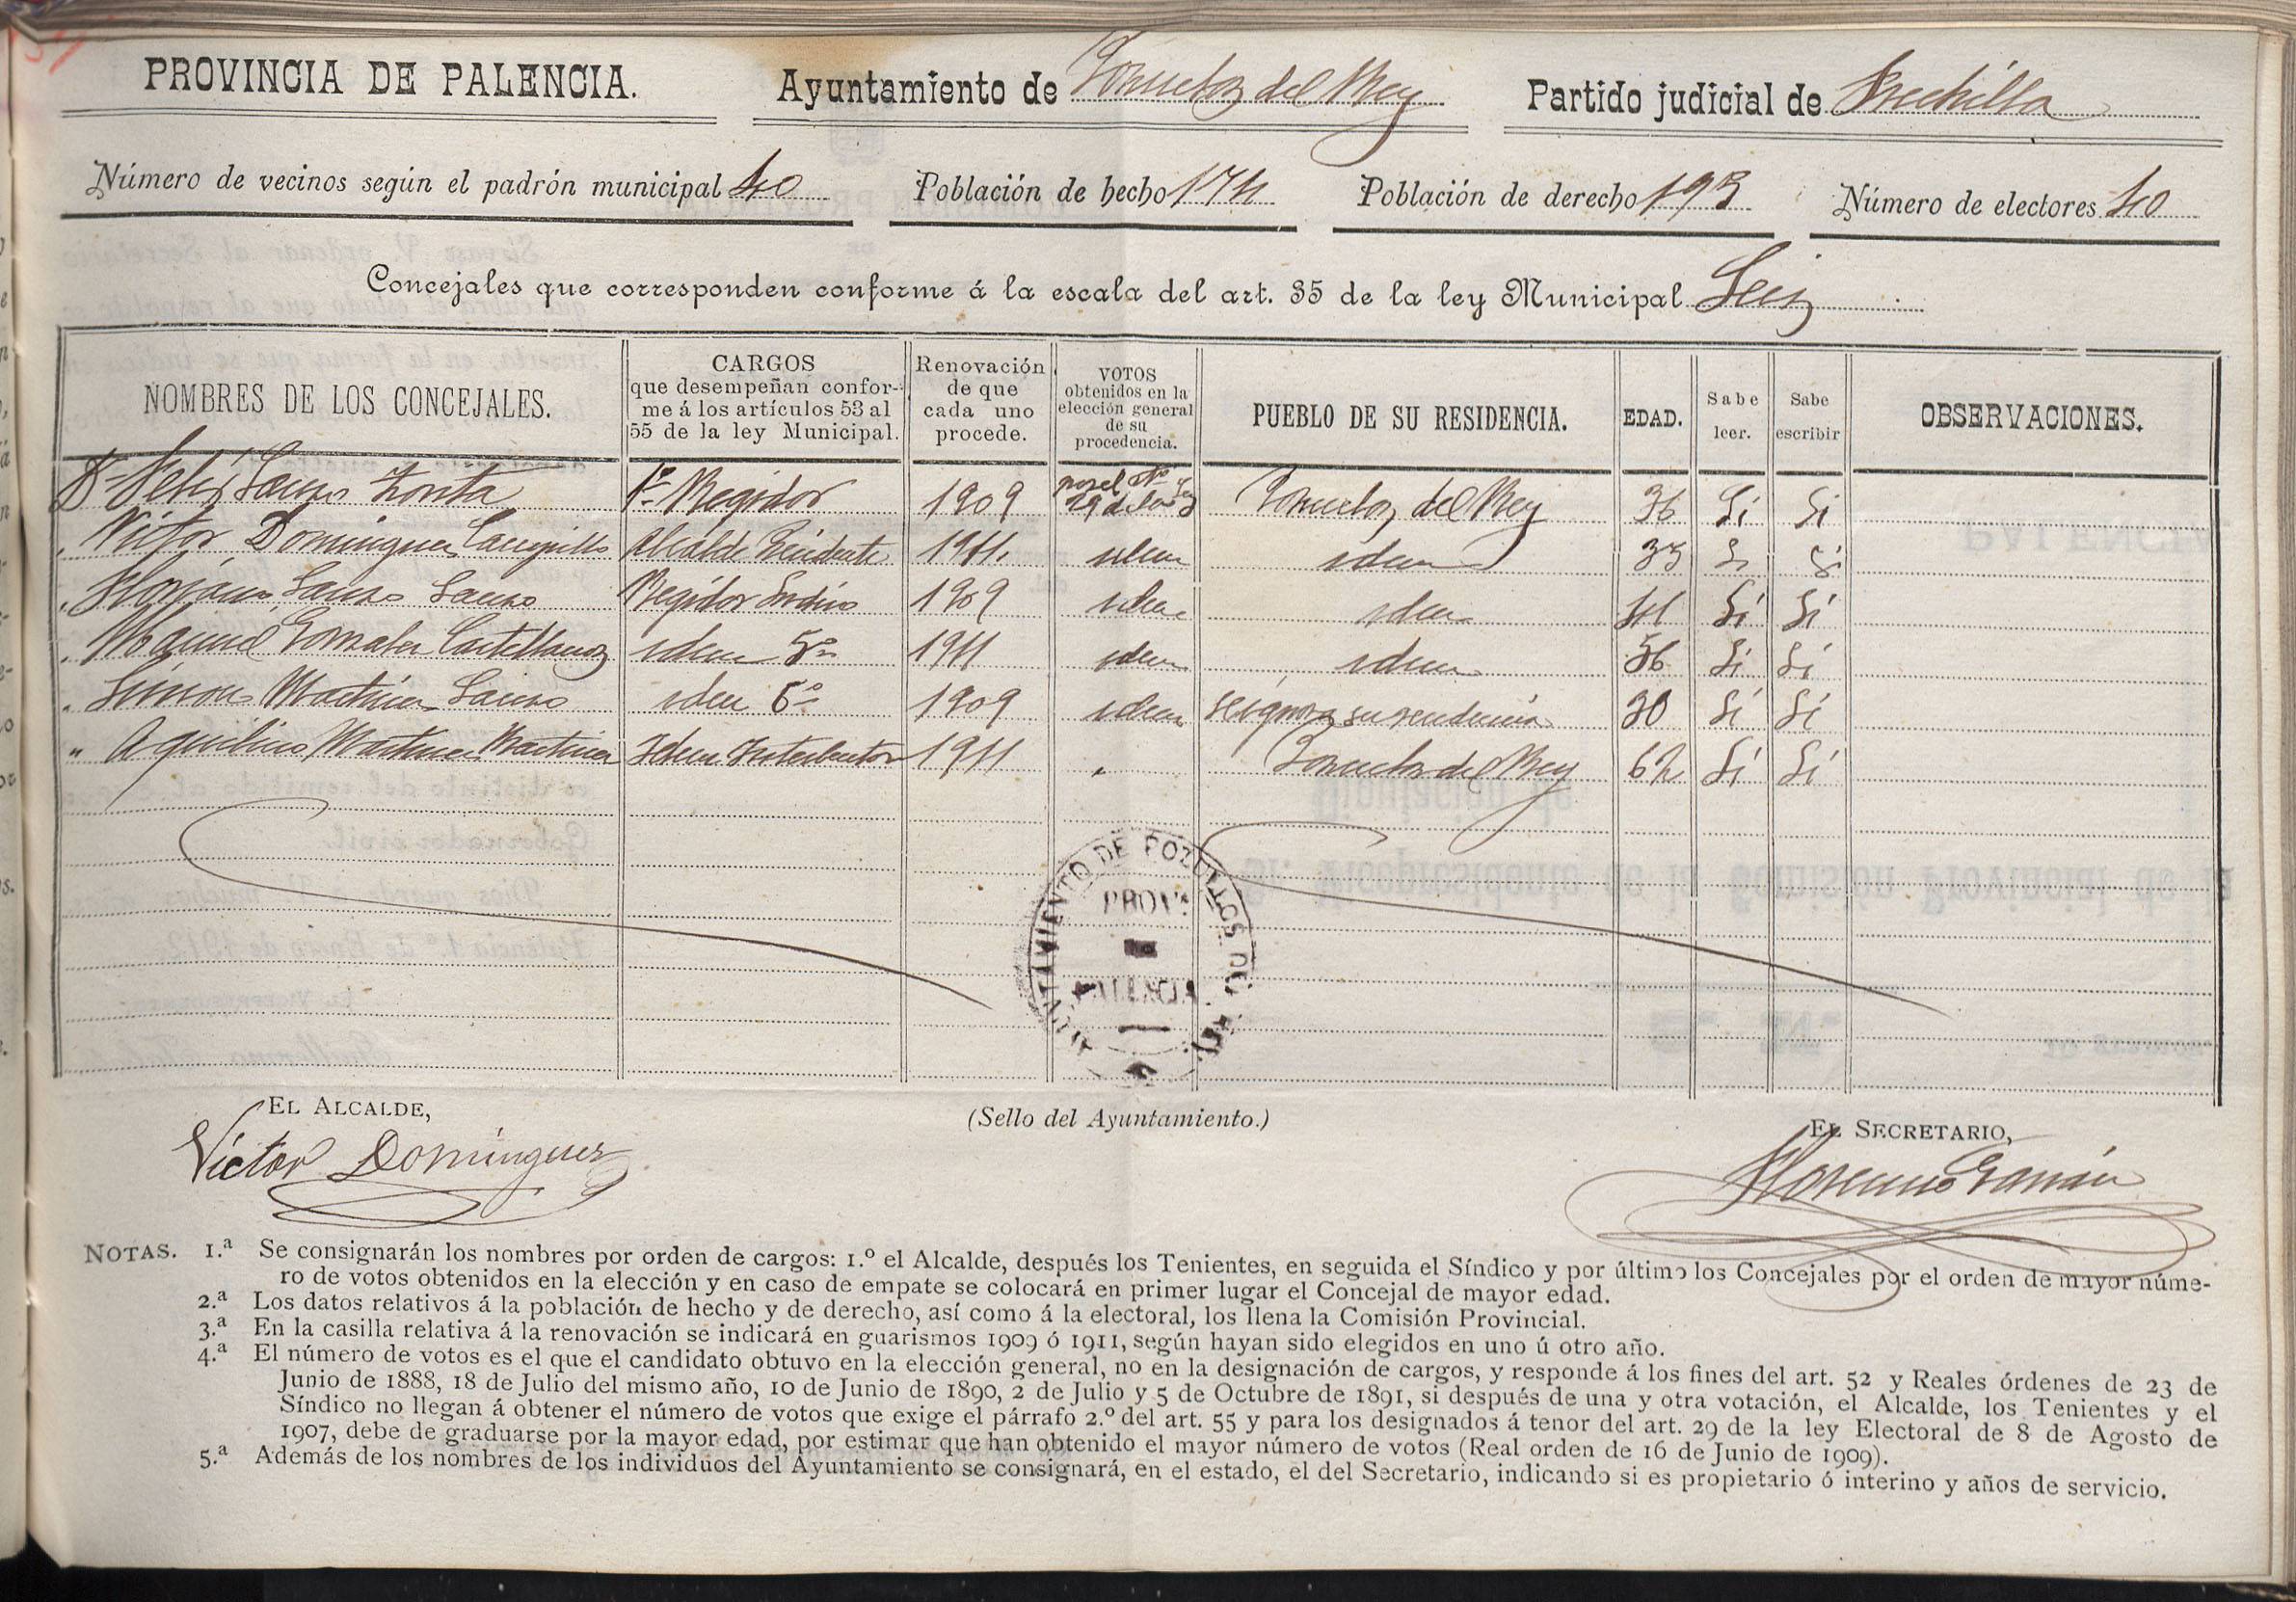 PROVINCIA DE PALENCIA. Ayuntamiento de Pozuelos del Rey Partido judicial de Frechilla
Número de vecinos según el padrón municipal 40 Población de hecho 174 Población de derecho 193 Número de electores 40
Concejales que corresponden conforme á la escala del art. 35 de la ley Municipal Seis
NOMBRES DE LOS CONCEJALES. CARGOS que desempeñan confor- me á los artículos 53 al 55 de la ley Municipal. Renovación de que cada uno procede. VOTOS obtenidos en la elección general de su procedencia. PUEBLO DE SU RESIDENCIA. EDAD. Sabe leer. Sabe escribir OBSERVACIONES.
Dn Felix Sanzo Zorita 1º Regidor 1909 por el Ato 29 de la Ley Pozuelos del Rey 36 Si Si
" Victor Dominguez Campillo Alcalde Presidente 1911 idem idem 33 Si Si
" Floriano Sanzo Sanzo Regidor Sindico 1909 idem idem 41 Si Si
" Manuel Gonzalez Castellanos idem 5º 1911 idem idem 56 Si Si
" Simon Martinez Sanzo idem 6º 1909 idem se ignora su residencia 30 Si Si
" Aquilino Martinez Martinez Idem 1911 " Pozuelos del Rey 62 Si Si
AYUNTAMIENTO DE POZUELOS DEL REY
PROVA
DE
PALENCIA
EL ALCALDE,
Victor Dominguez
(Sello del Ayuntamiento.)
EL SECRETARIO,
Florencio Garrán
NOTAS. 1.ª Se consignarán los nombres por orden de cargos: 1.º el Alcalde, después los Tenientes, en seguida el Síndico y por último los Concejales por el orden de mayor núme-
ro de votos obtenidos en la elección y en caso de empate se colocará en primer lugar el Concejal de mayor edad.
2.ª Los datos relativos á la población de hecho y de derecho, así como á la electoral, los llena la Comisión Provincial.
3.ª En la casilla relativa á la renovación se indicará en guarismos 1909 ó 1911, según hayan sido elegidos en uno ú otro año.
4.ª El número de votos es el que el candidato obtuvo en la elección general, no en la designación de cargos, y responde á los fines del art. 52 y Reales órdenes de 23 de
Junio de 1888, 18 de Julio del mismo año, 10 de Junio de 1890, 2 de Julio y 5 de Octubre de 1891, si después de una y otra votación, el Alcalde, los Tenientes y el
Síndico no llegan á obtener el número de votos que exige el párrafo 2.º del art. 55 y para los designados á tenor del art. 29 de la ley Electoral de 8 de Agosto de
1907, debe de graduarse por la mayor edad, por estimar que han obtenido el mayor número de votos (Real orden de 16 de Junio de 1909).
5.ª Además de los nombres de los individuos del Ayuntamiento se consignará, en el estado, el del Secretario, indicando si es propietario ó interino y años de servicio.